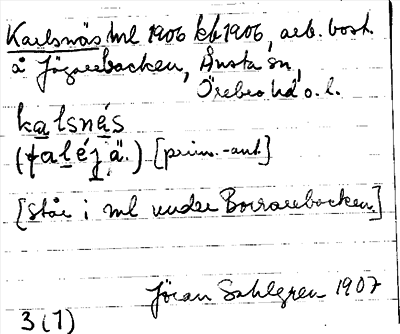 Karlsnäs ml 1906 kb 1906, arb. bost.
å Jägarebacken, Ånsta sn,
Örebro hd o. l.
kalsnés
[prim.-ant.]
[står i ml under Borrarebacken.]
Jöran Sahlgren 1907
3(1)